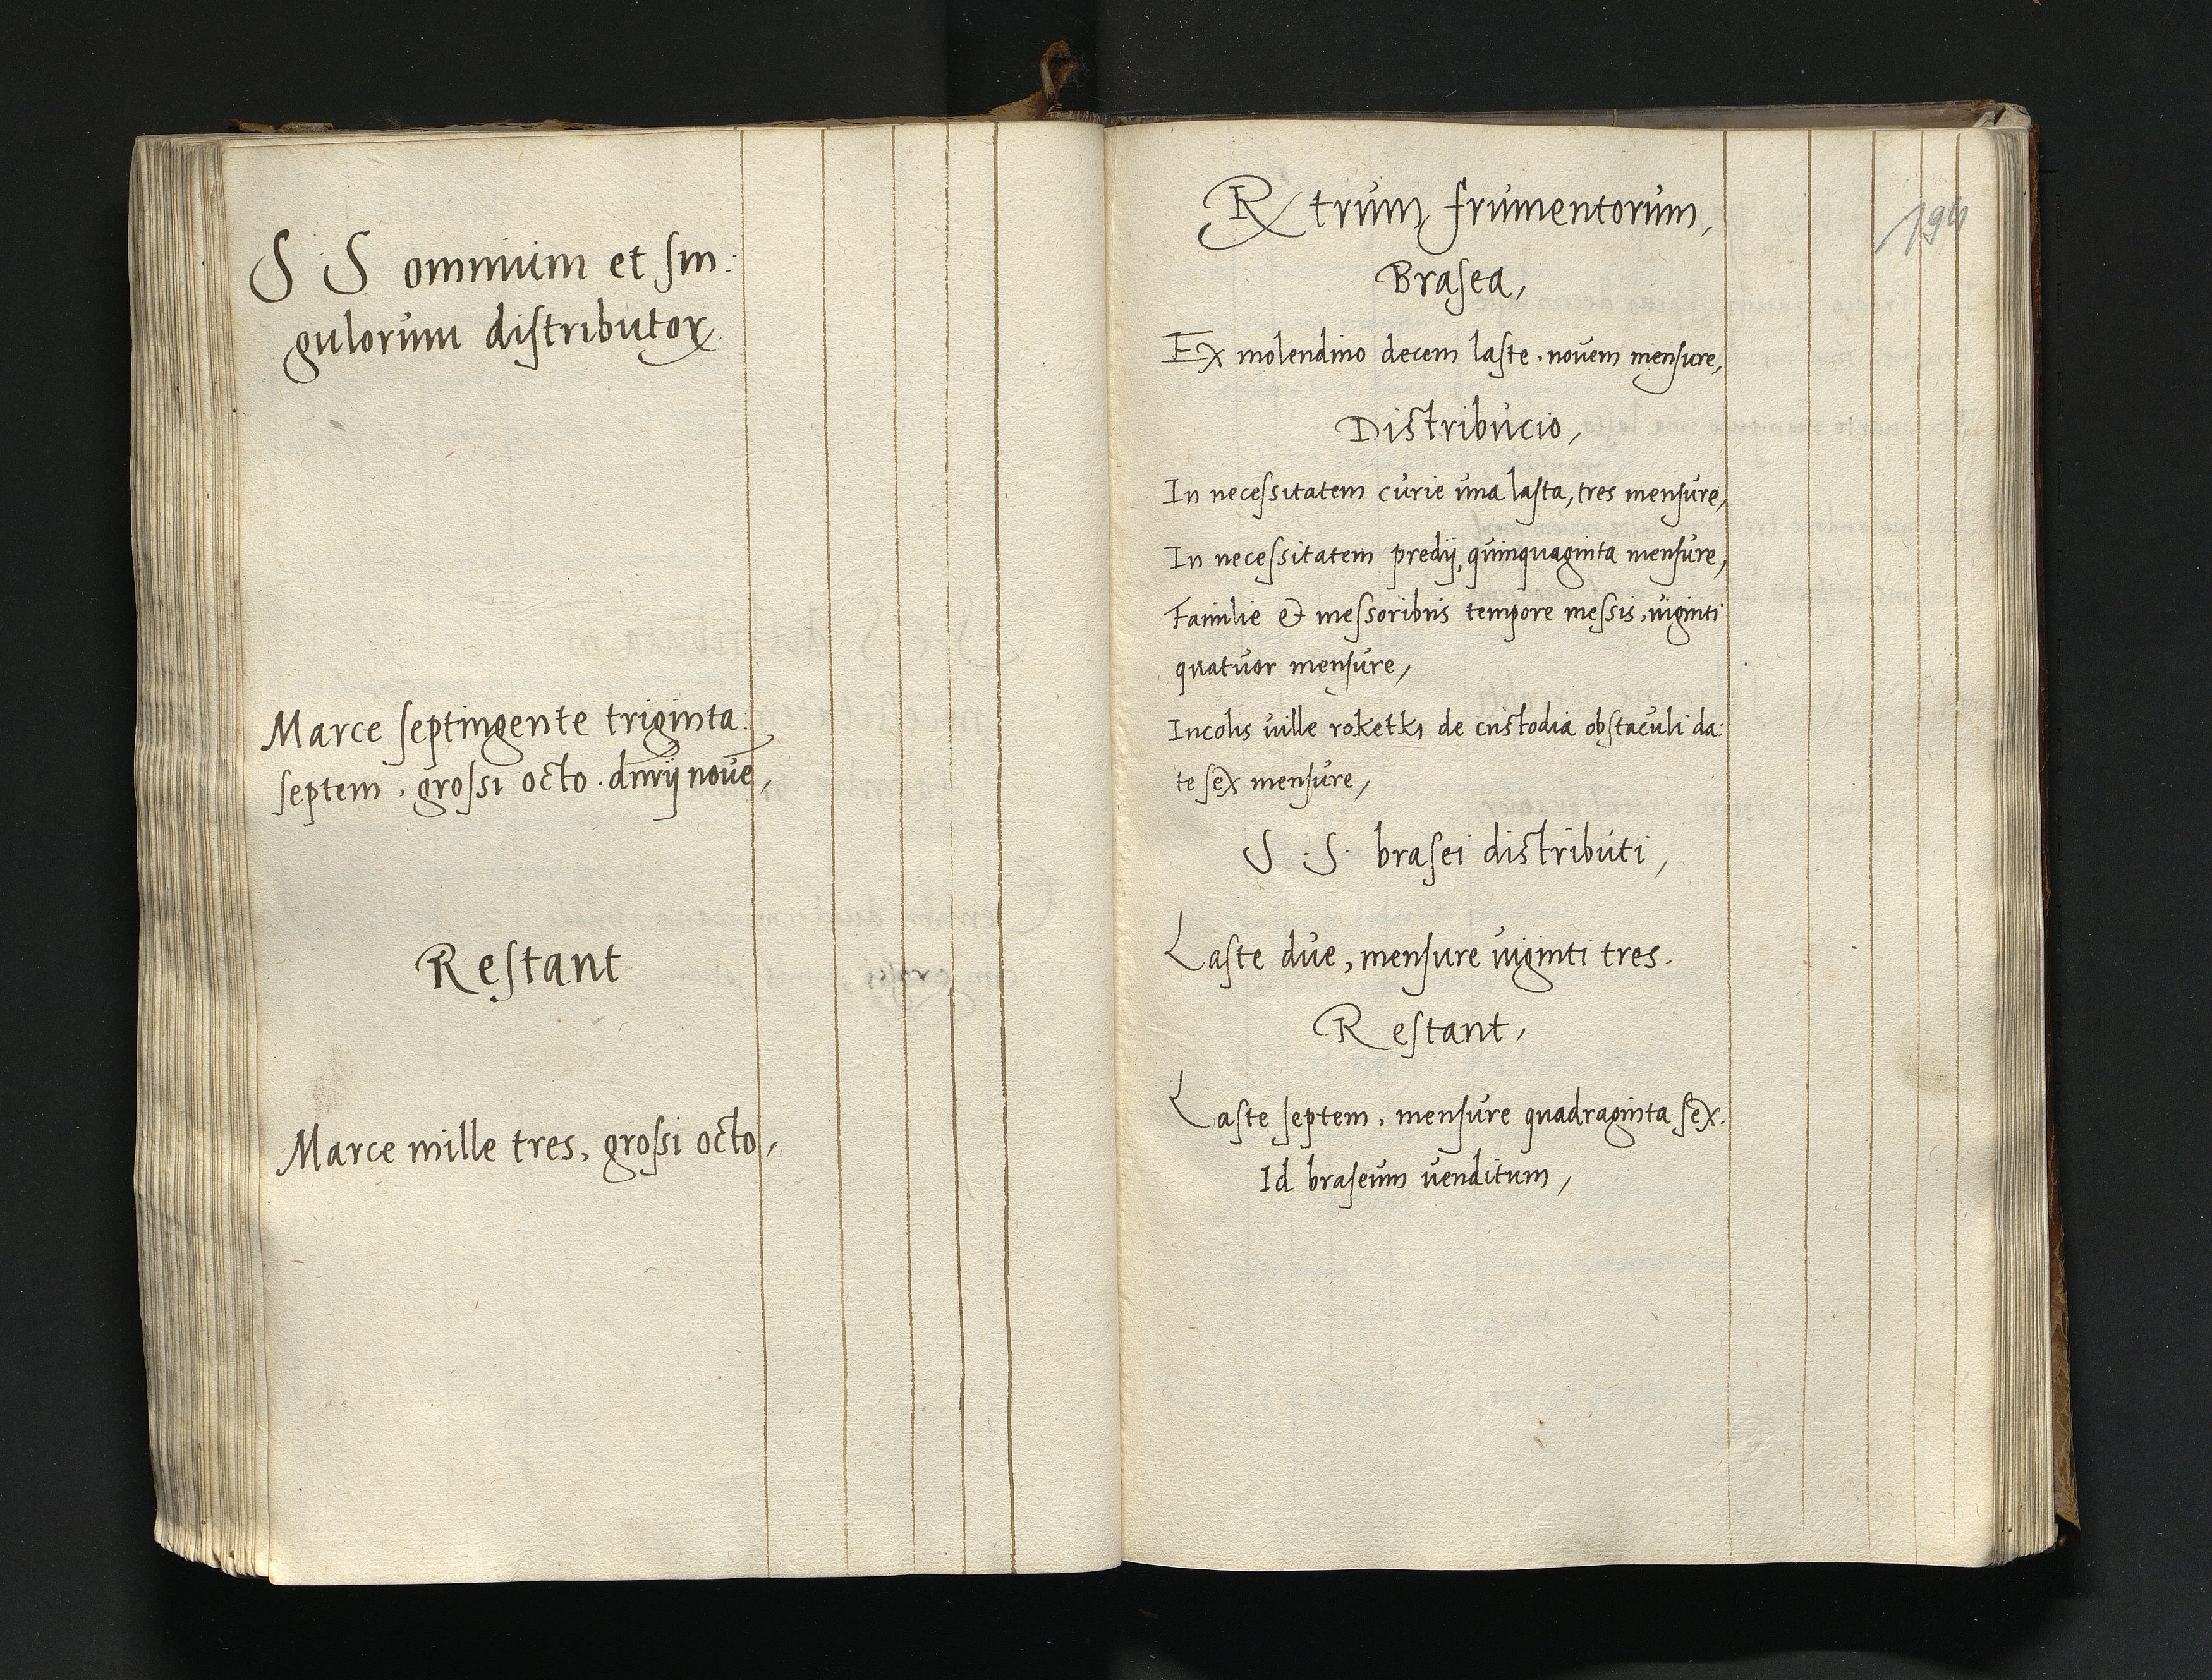 S S omnium et sin:
gulorum distributoꝝ
Marce septingente triginta:
septem, grossi octo. dnrij novē,
Restant
Marce mille tres, grossi octo,
194
Rtrum frumentorum,
Brasea,
Ex molendino decem laste, novem mensure,
Distribucio,
In necessitatem curie una lasta, tres mensure,
In necessitatem predij, quinquaginta mensure,
Familie et messoribus tempore messis, viginti
quatuor mensure,
Incolis ville roketk, de custodia obstaculi da:
te sex mensure,
S S brasei distributi,
Laste due, mensure viginti tres.
Restant,
Laste septem, mensure quadraginta sex.
Id braseum venditum,